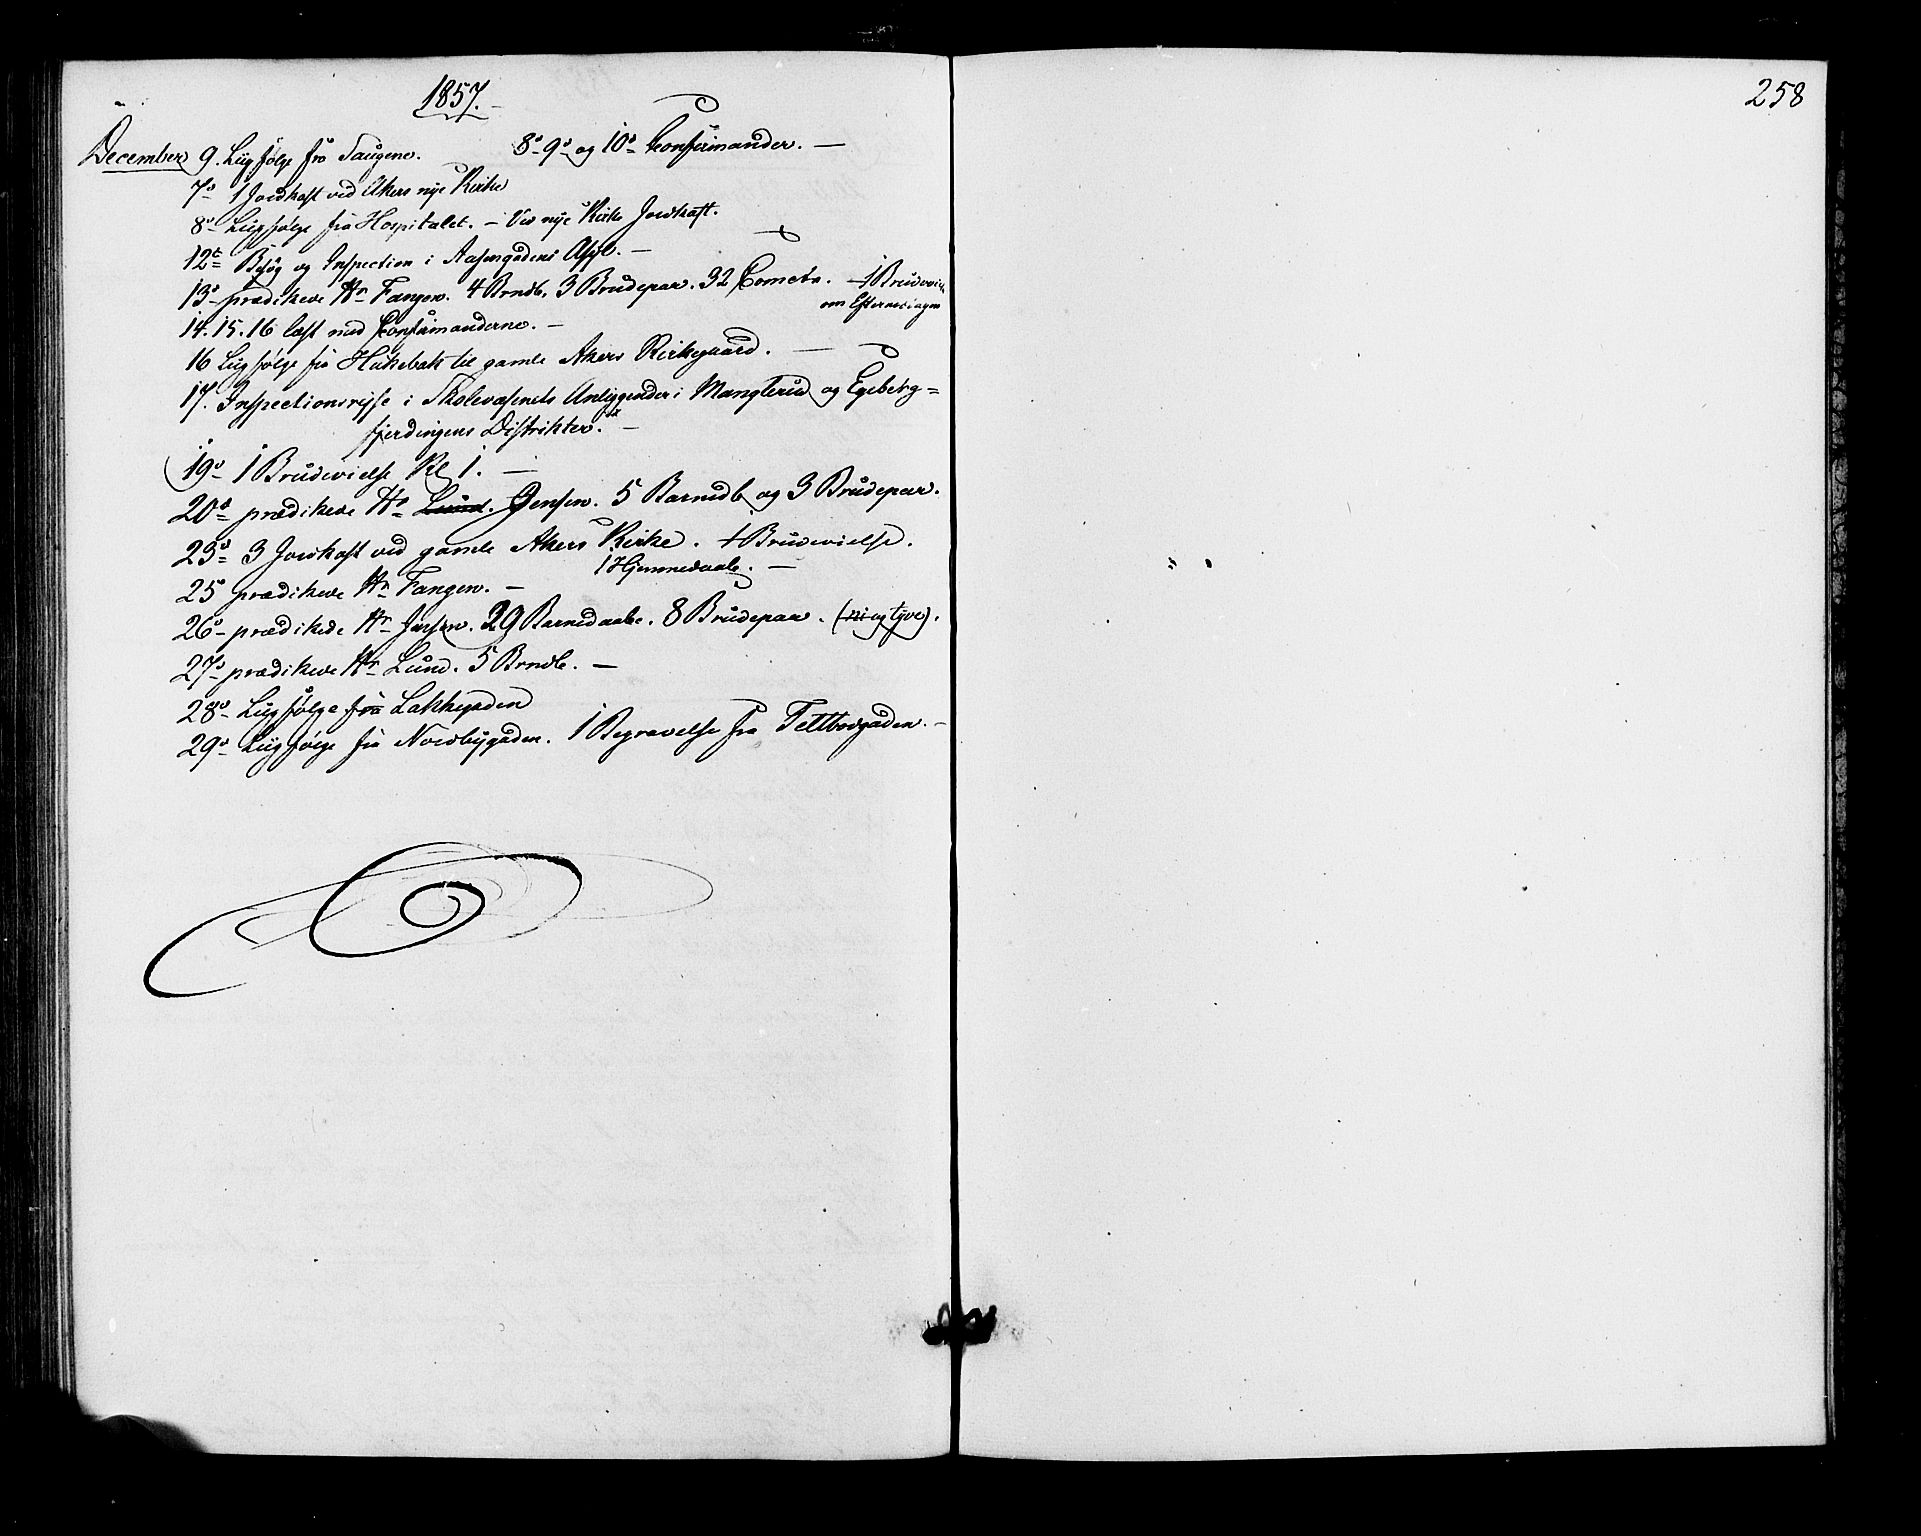 1857.
258
December 9. Liigfølge fra Saugene. 8de 9de og 10de Confirmander. —
7de 1 Jordkast ved Akers nye Kirke
8de Liigfølge fra Hospitalet. — Ved nye Kirke Jordkast.
12te Besøg og Inspection i Aasengadens Asyl. —
13de prædikede Hr Fangen. 4 Brndb. 3 Brudepar. 32 Comctr. — 1 Brudevielse
om Eftermidagen
14. 15. 16 læst med Confirmanderne. —
16 Liigfølge fra Hakebak til gamle Akers Kirkegaard. —
17. Inspectionsrejse i Skolevæsenets Anliggender i Manglerud og Egeberg=
fjerdingens Distrikter. —
19de 1 Brudevielse Kl 1. —
20de prædikede Hr Lund. Jensen. 5 Barnedb og 3 Brudepar.
23de 3 Jordkast ved gamle Akers Kirke. 1 Brudevielse.
1 Hjemmedaab. —
25 prædikede Hr Fangen. —
26de prædikede Hr Jensen. 29 Barnedaabe. 8 Brudepar. (ni og tyve).
27de prædikede Hr Lund. 5 Brndb. —
28de Liigfølge fra Lakkegaden
29de Liigfølge fra Nordbygaden. 1 Begravelse fra Teltbodgaden. —